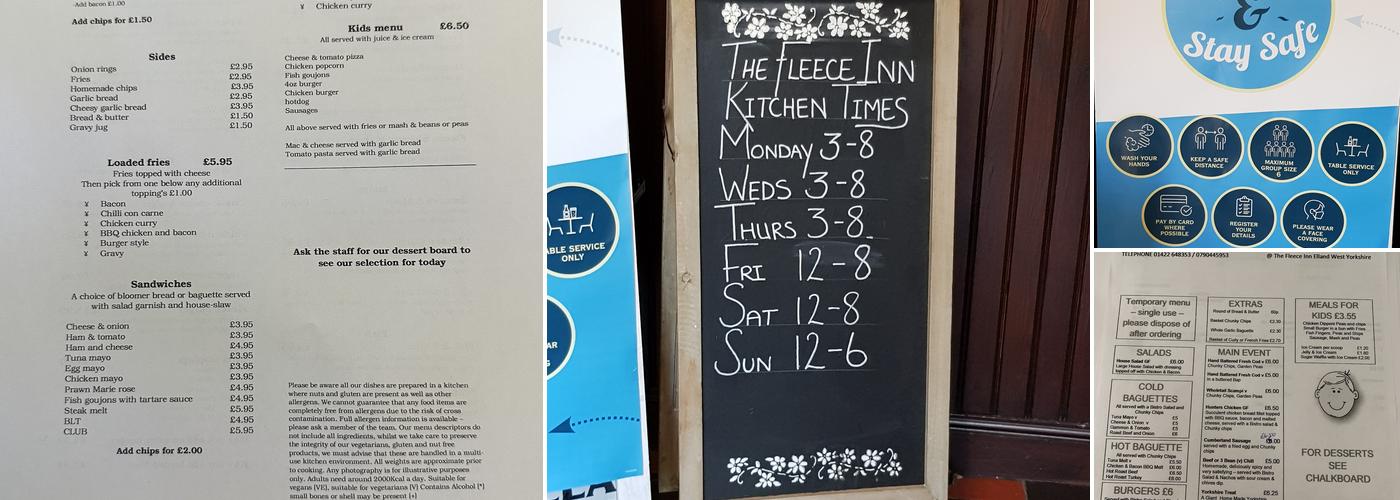 -Add bacon £1.00
Add chips for £1.50
Sides
Onion rings £2.95
Fries £2.95
Homemade chips £3.95
Garlic bread £2.95
Cheesy garlic bread £3.95
Bread & butter £1.50
Gravy jug £1.50
Loaded fries £5.95
Fries topped with cheese
Then pick from one below any additional
topping's £1.00
¥ Bacon
¥ Chilli con carne
¥ Chicken curry
¥ BBQ chicken and bacon
¥ Burger style
¥ Gravy
Sandwiches
A choice of bloomer bread or baguette served
with salad garnish and house-slaw
Cheese & onion £3.95
Ham & tomato £3.95
Ham and cheese £4.95
Tuna mayo £3.95
Egg mayo £3.95
Chicken mayo £3.95
Prawn Marie rose £4.95
Fish goujons with tartare sauce £4.95
Steak melt £5.95
BLT £4.95
CLUB £5.95
Add chips for £2.00
¥ Chicken curry
Kids menu £6.50
All served with juice & ice cream
Cheese & tomato pizza
Chicken popcorn
Fish goujons
4oz burger
Chicken burger
hotdog
Sausages
All above served with fries or mash & beans or peas
Mac & cheese served with garlic bread
Tomato pasta served with garlic bread
Ask the staff for our dessert board to
see our selection for today
Please be aware all our dishes are prepared in a kitchen
where nuts and gluten are present as well as other
allergens. We cannot guarantee that any food items are
completely free from allergens due to the risk of cross
contamination. Full allergen information is available –
please ask a member of the team. Our menu descriptors do
not include all ingredients, whilst we take care to preserve
the integrity of our vegetarians, gluten and nut free
products, we must advise that these are handled in a multi-
use kitchen environment. All weights are approximate prior
to cooking. Any photography is for illustrative purposes
only. Adults need around 2000Kcal a day. Suitable for
vegans [VE], suitable for vegetarians [V] Contains Alcohol [*]
small bones or shell may be present [+]
ABLE SERVICE
ONLY
THE FLEECE INN
KITCHEN TIMES
MONDAY 3-8
WEDS 3-8
THURS 3-8
FRI 12-8
SAT 12-8
SUN 12-6
&
Stay Safe
WASH YOUR
HANDS
KEEP A SAFE
DISTANCE
MAXIMUM
GROUP SIZE
6
TABLE SERVICE
ONLY
PAY BY CARD
WHERE
POSSIBLE
REGISTER
YOUR
DETAILS
PLEASE WEAR
A FACE
COVERING
TELEPHONE 01422 648353 / 0790445953 @ The Fleece Inn Elland West Yorkshire
Temporary menu
– single use –
please dispose of
after ordering
SALADS
House Salad GF £6.00
Large House Salad with dressing
topped off with Chicken & Bacon
COLD
BAGUETTES
All served with a Bistro Salad and
Chunky Chips
Tuna Mayo v £5
Cheese & Onion v £5
Gammon & Tomato £5
Roast Beef and Onion £6
HOT BAGUETTE
All served with Chunky Chips
Tuna Melt v £5.50
Chicken & Bacon BBQ Melt £6.00
Hot Roast Beef £6.50
Hot Roast Turkey £6.00
BURGERS £6
EXTRAS
Round of Bread & Butter 60p
Basket Chunky Chips £2.30
Whole Garlic Baguette £2.30
Basket of Curly or French Fries £2.70
MAIN EVENT
Hand Battered Fresh Cod v £6.00
Chunky Chips, Garden Peas
Hand Battered Fresh Cod v £5.00
in a buttered Bap
Wholetail Scampi v £6.00
Chunky Chips, Garden Peas
Hunters Chicken GF £6.50
Succulent chicken breast fillet topped
with BBQ sauce, bacon and melted
cheese, served with a Bistro salad &
Chunky chips
Cumberland Sausage
served with a fried egg and Chunky
chips
Beef or 3 Bean (v) Chili £5.00
Homemade, deliciously spicy and
very satisfying – served with Bistro
Salad & Nachos with sour cream &
chives dip.
Yorkshire Treat £6.25
MEALS FOR
KIDS £3.55
Chicken Dippers Peas and chips
Small Burger in a bun with Fries
Fish Fingers, Peas and Chips
Sausage, Mash and Peas
Ice Cream per scoop £1.20
Jelly & Ice Cream £1.80
Sugar Waffle with Ice Cream £2.00
FOR DESSERTS
SEE
CHALKBOARD